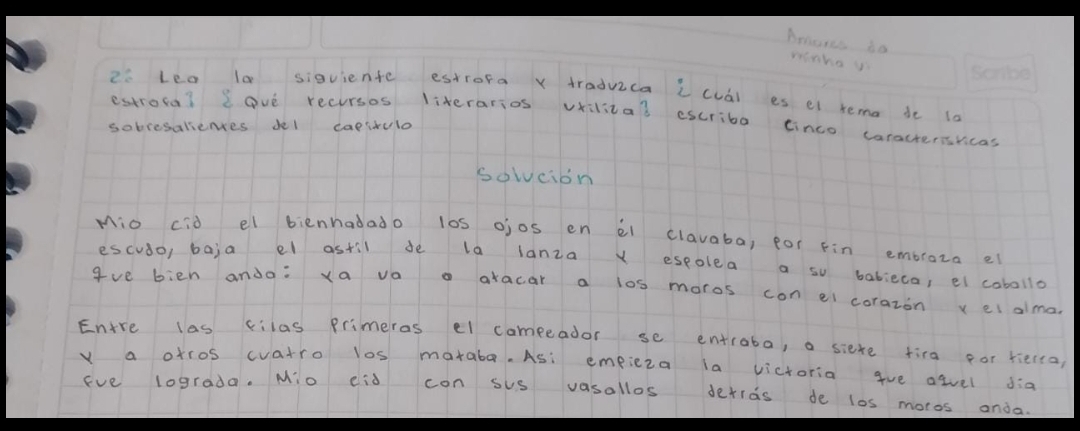 Amores da
minha vi
Scribe
2: Leo la siguiente estrofa y traduzca ¿cuál es el tema de la
estrofa? ¿Qué recursos literarios utiliza? escriba cinco características
sobresalientes del capitulo
Solución
Mio cid el bienhadado los ojos en él clavaba, por fin embraza el
escudo, baja el astil de la lanza y espolea a su babieca, el caballo
que bien anda: ya va a atacar a los moros con el corazón y el alma.
Entre las filas primeras el campeador se entraba, a siete tira por tierra,
y a otros cuatro los mataba. Asi empieza la victoria que aquel dia
fue lograda. Mio cid con sus vasallos detrás de los moros anda.